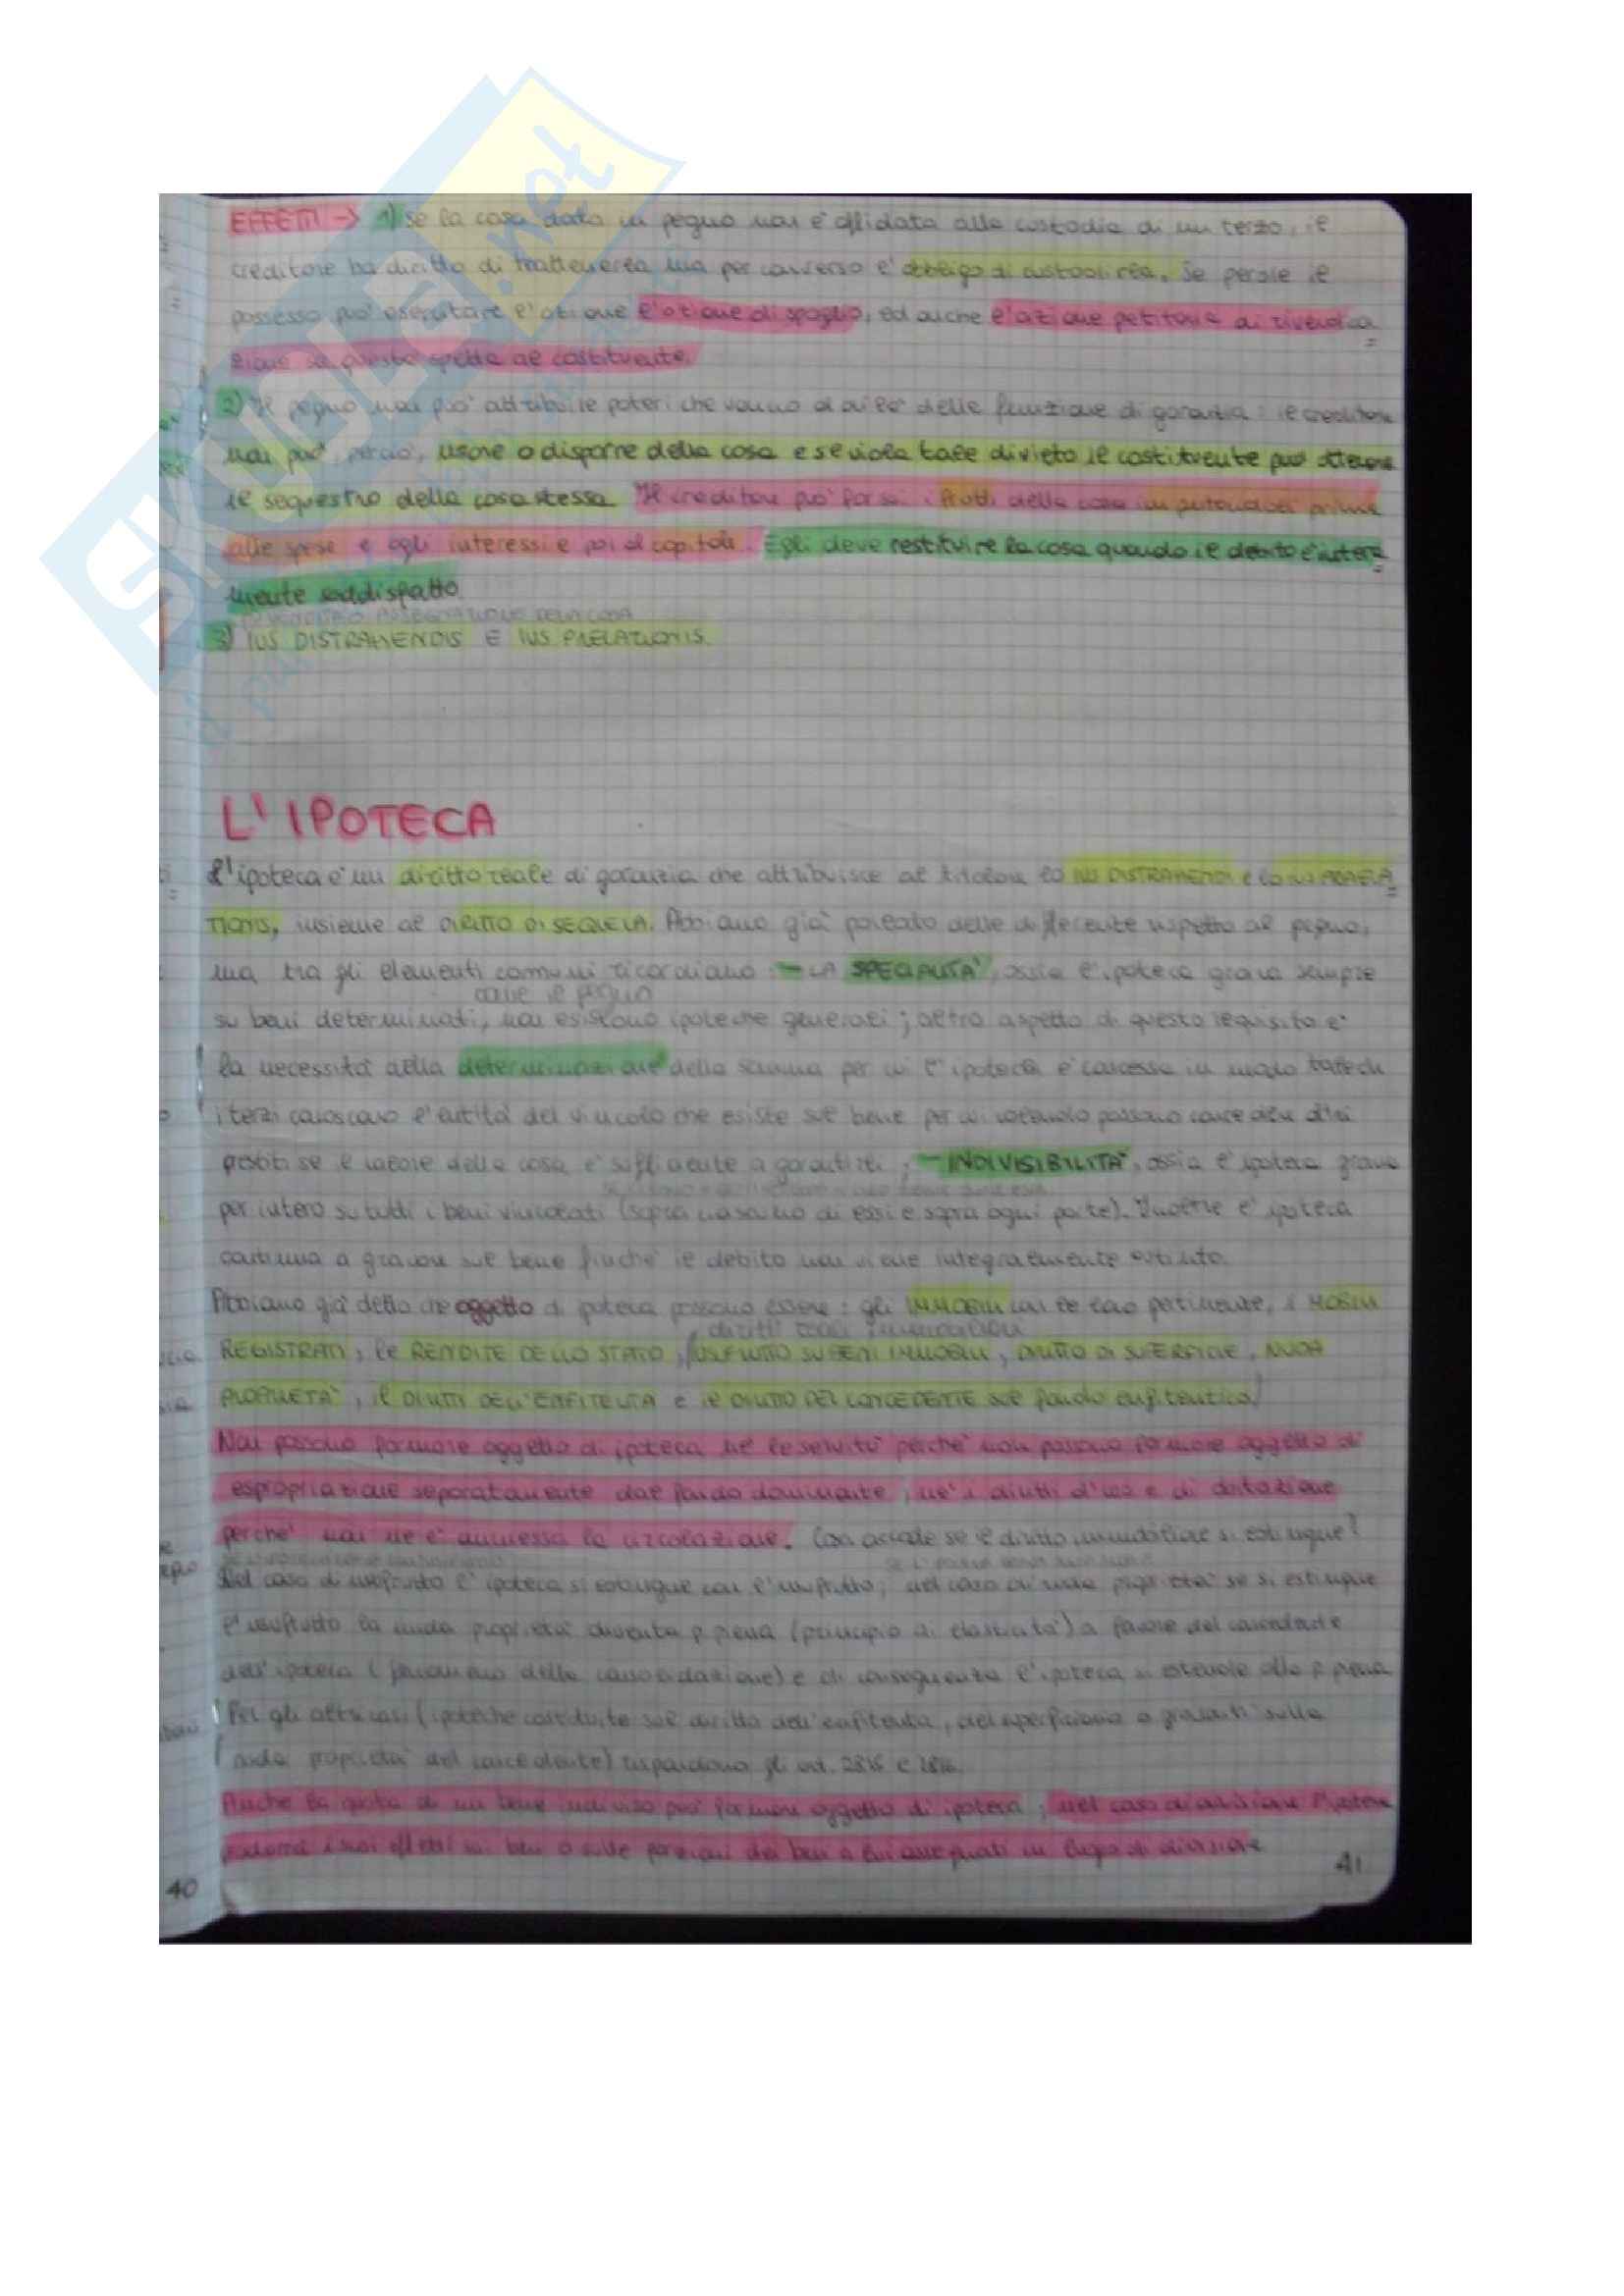 EFFETTI → 1) Se la cosa data in pegno non è affidata alla custodia di un terzo, il
creditore ha diritto di trattenerla ma per converso l'obbligo di custodirla. Se perde il
possesso può esercitare l'azione l'azione di spoglio, ed anche l'azione petitoria di rivendica
zione se questa spetta al costituente.
2) Il pegno non può attribuire poteri che vanno al di là della funzione di garanzia: il creditore
non può, perciò, usare o disporre della cosa e se viola tale divieto il costituente può ottenere
il sequestro della cosa stessa. Il creditore può far suoi i frutti della cosa imputandoli prima
alle spese e agli interessi e poi al capitale. Egli deve restituire la cosa quando il debito è intera
mente soddisfatto.
ASSEGNAZIONE DELLA COSA
3) IUS DISTRAHENDIS E IUS PRELATIONIS.
L'IPOTECA
L'ipoteca è un diritto reale di garanzia che attribuisce al titolare lo IUS DISTRAHENDI e lo IUS PRAELA
TIONIS, insieme al DIRITTO DI SEQUELA. Abbiamo già parlato delle differenze rispetto al pegno,
ma tra gli elementi comuni ricordiamo: - LA SPECIALITA', ossia l'ipoteca grava sempre
come il pegno
su beni determinati, non esistono ipoteche generali; altro aspetto di questo requisito è
la necessità della determinazione della somma per cui l'ipoteca è concessa in modo tale che
i terzi conoscano l'entità del vincolo che esiste sul bene per cui volendo possano concedere altri
prestiti se il valore della cosa è sufficiente a garantirli; - INDIVISIBILITA', ossia l'ipoteca grava
per intero su tutti i beni vincolati (sopra ciascuno di essi e sopra ogni parte). Inoltre l'ipoteca
continua a gravare sul bene finché il debito non viene integralmente estinto.
Abbiamo già detto che oggetto di ipoteca possono essere: gli IMMOBILI con le loro pertinenze, i MOBILI
diritti reali immobiliari
REGISTRATI, le RENDITE DELLO STATO, USUFRUTTO SU BENI IMMOBILI, DIRITTO DI SUPERFICIE, NUDA
PROPRIETA', il DIRITTI DELL'ENFITEUTA e il DIRITTO DEL CONCEDENTE sul fondo enfiteutico!
Non possono formare oggetto di ipoteca né le servitù perché non possono formare oggetto di
espropriazione separatamente dal fondo dominante, né i diritti d'uso e di abitazione
perché non ne è ammessa la circolazione. Cosa accade se il diritto immobiliare si estingue?
Nel caso di usufrutto l'ipoteca si estingue con l'usufrutto; nel caso di nuda proprietà se si estingue
l'usufrutto la nuda proprietà diventa p. piena (principio di elasticità) a favore del concedente
dell'ipoteca (fenomeno della consolidazione) e di conseguenza l'ipoteca si estende alla p. piena
Per gli altri casi (ipoteche costituite sul diritto dell'enfiteuta, del superficiario o gravanti sulla
nuda proprietà del concedente) rispondono gli art. 2815 e 2816.
Anche la quota di un bene indiviso può formare oggetto di ipoteca; nel caso di divisione l'ipoteca
produrrà i suoi effetti sui beni o sulle porzioni dei beni a lui assegnati in luogo di divisione
40
41
SKUOLA.net